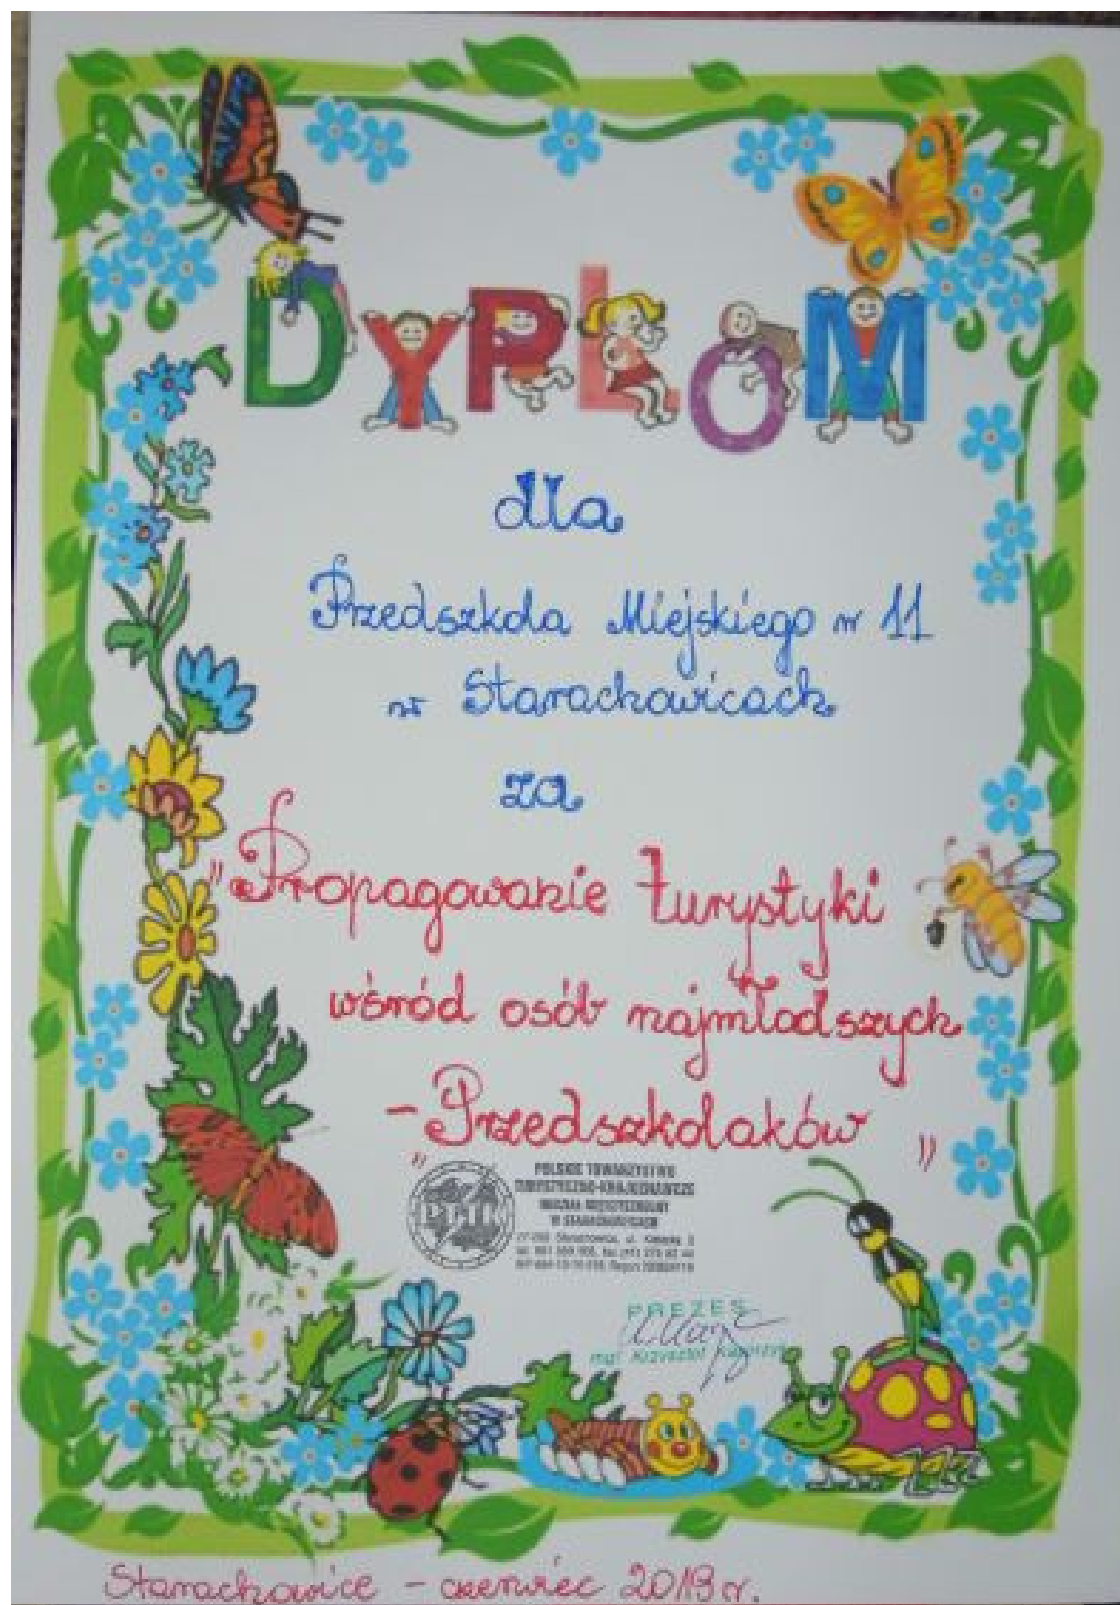 DYPLOM
dla
Przedszkola Miejskiego nr 11
w Starachowicach
za
"Propagowanie turystyki
wśród osób najmłodszych
- Przedszkolaków"
POLSKIE TOWARZYSTWO
TURYSTYCZNO-KRAJOZNAWCZE
ODDZIAŁ MIĘDZYSZKOLNY
W STARACHOWICACH
PTTK
PREZES
mgr Krzysztof
Starachowice - czerwiec 2019 r.